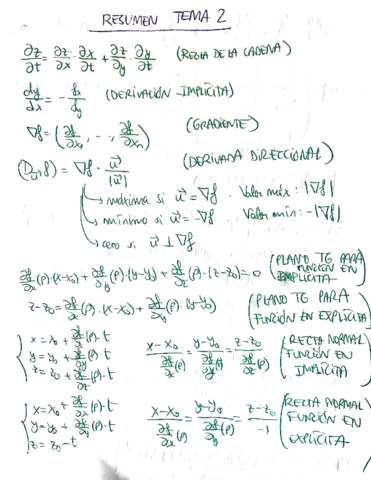 RESUMEN TEMA 2
∂z/∂t = ∂z/∂x · ∂x/∂t + ∂z/∂y · ∂y/∂t (REGLA DE LA CADENA)
dy/dx = - fx/fy (DERIVACIÓN IMPLÍCITA)
∇f = (∂f/∂x1, .., ∂f/∂xn) (GRADIENTE)
(D_u⃗ f) = ∇f · u⃗/|u⃗| (DERIVADA DIRECCIONAL)
→ máxima si u⃗ = ∇f . Valor máx: |∇f|
→ mínimo si u⃗ = -∇f . Valor mín: -|∇f|
→ cero si u⃗ ⊥ ∇f
∂f/∂x(P)·(x-x0) + ∂f/∂y(P)·(y-y0) + ∂f/∂z(P)·(z-z0) = 0 (PLANO TG PARA FUNCIÓN EN IMPLÍCITA)
z-z0 = ∂f/∂x(P)·(x-x0) + ∂f/∂y(P)·(y-y0) (PLANO TG PARA FUNCIÓN EN EXPLÍCITA)
{ x = x0 + ∂f/∂x(P)·t
y = y0 + ∂f/∂y(P)·t
z = z0 + ∂f/∂z(P)·t
x-x0 / ∂f/∂x(P) = y-y0 / ∂f/∂y(P) = z-z0 / ∂f/∂z(P) (RECTA NORMAL FUNCIÓN EN IMPLÍCITA)
{ x = x0 + ∂f/∂x(P)·t
y = y0 + ∂f/∂y(P)·t
z = z0 - t
x-x0 / ∂f/∂x(P) = y-y0 / ∂f/∂y(P) = z-z0 / -1 (RECTA NORMAL FUNCIÓN EN EXPLÍCITA)